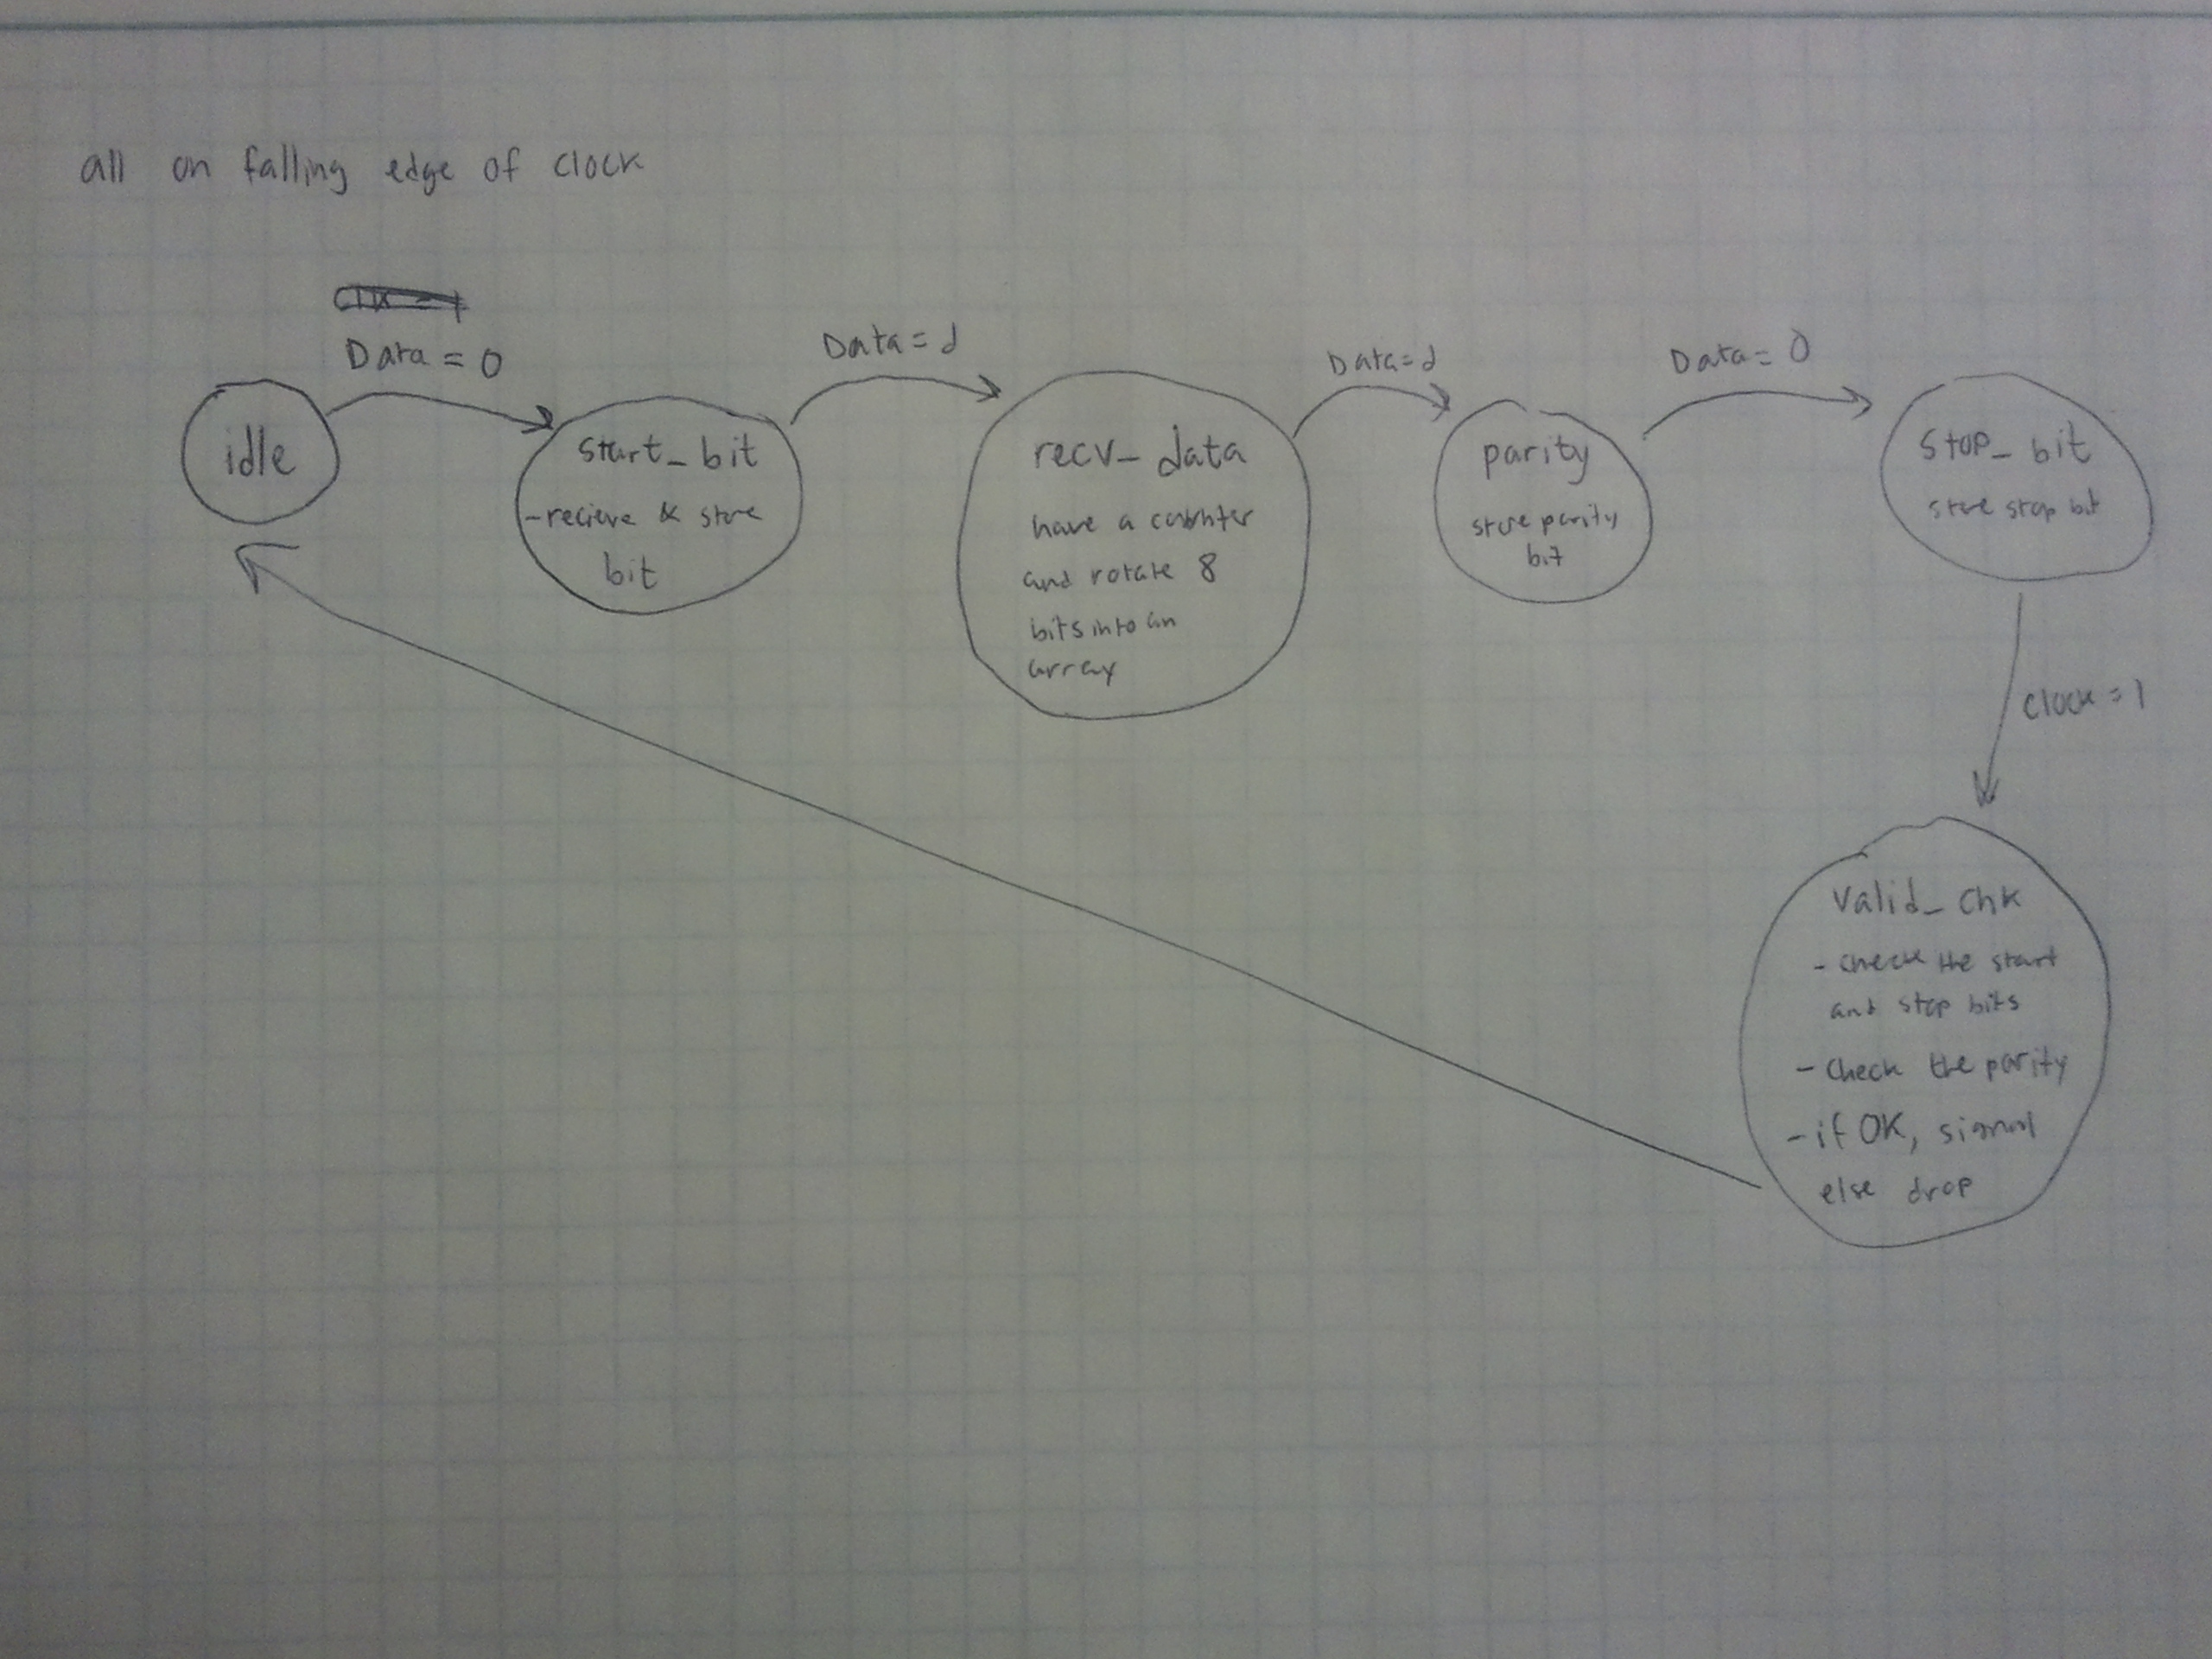 all on falling edge of clock
Clk = 1
Data = 0
Data = d
Data = d
Data = 0
idle
start_bit
- recieve & store
bit
recv_data
have a counter
and rotate 8
bits into an
array
parity
store parity
bit
stop_bit
store stop bit
clock = 1
valid_chk
- check the start
and stop bits
- Check the parity
- if OK, signal
else drop